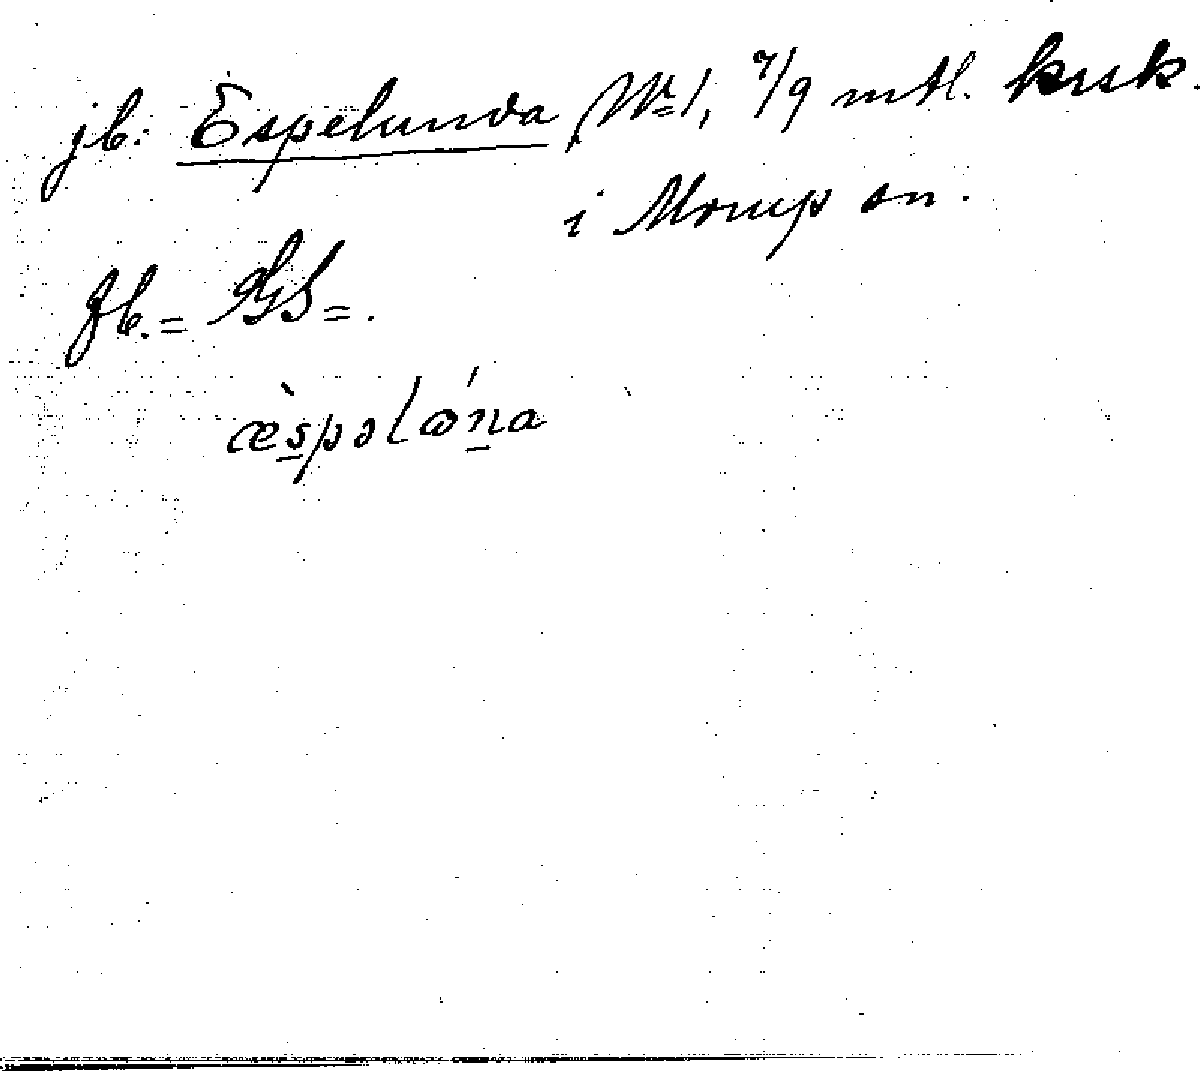 jb: Espelunda No 1, 7/9 mtl. krsk.
i Morup sn.
fb. = GS = .
æ̀spəlɷ́na